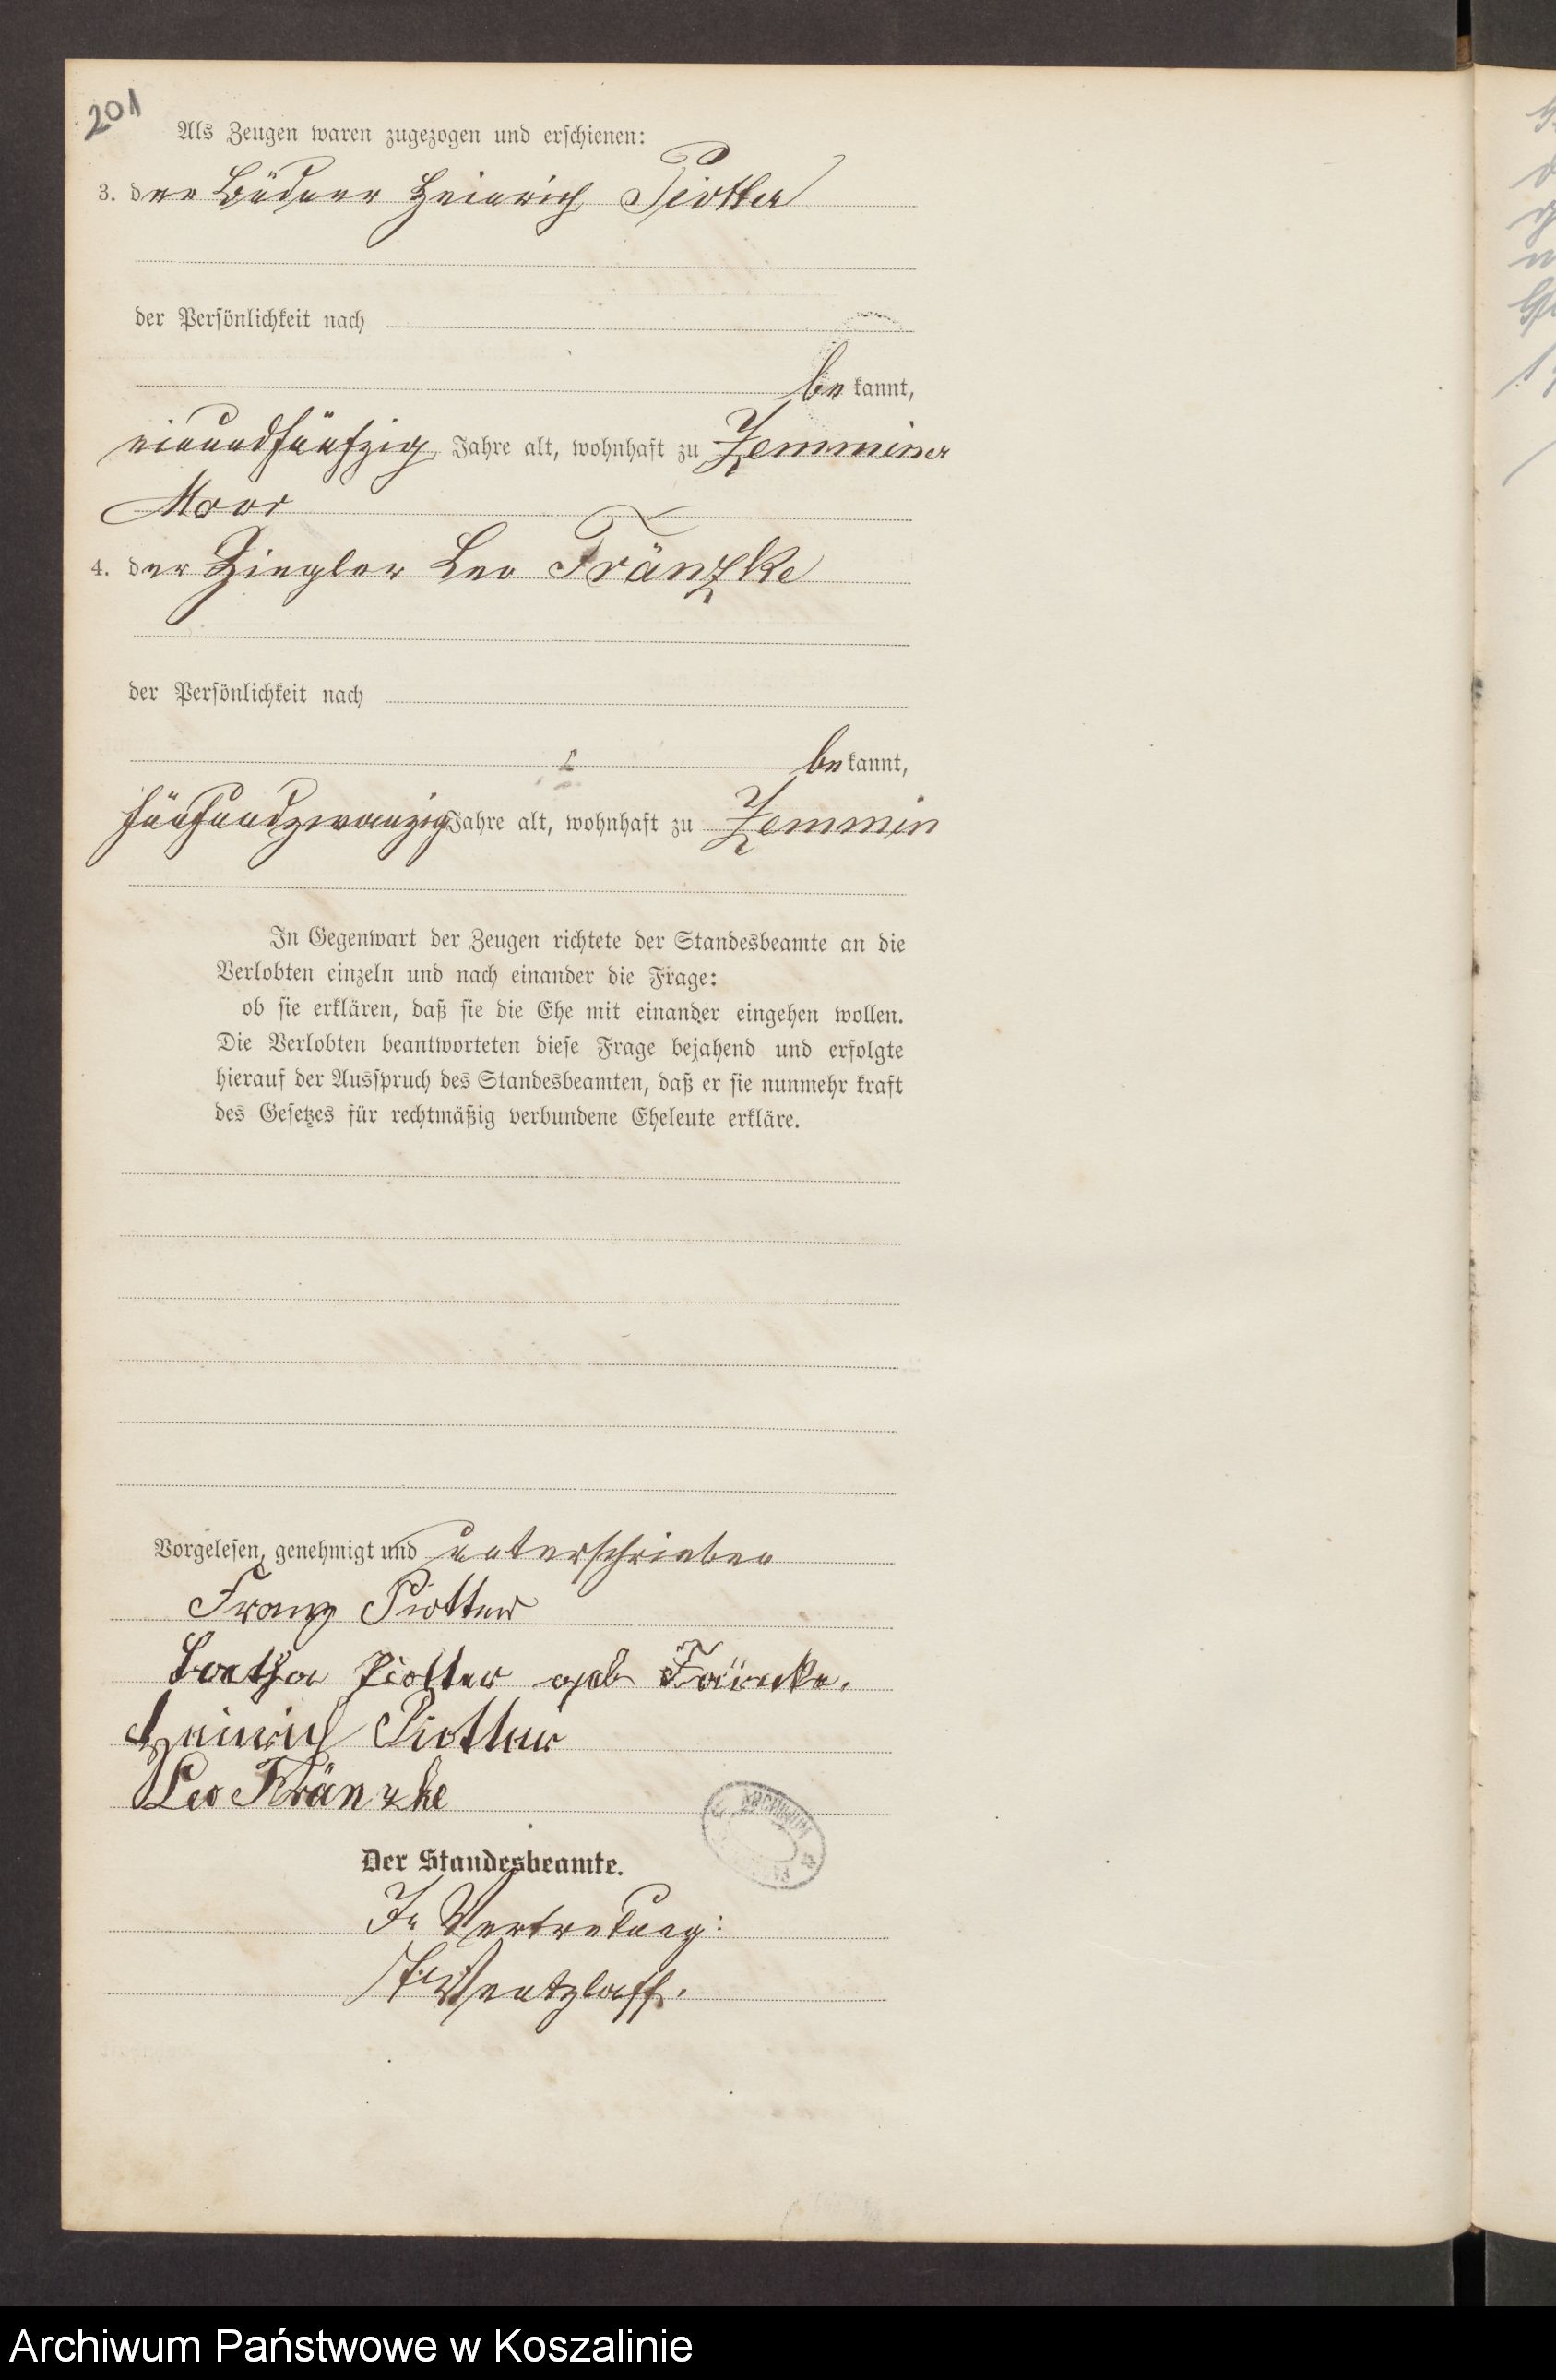 201
Als Zeugen waren zugezogen und erschienen:
3. der Büdner Heinrich Piotter
der Persönlichkeit nach
bekannt,
einundfünfzig Jahre alt, wohnhaft zu Zemminer
Moor
4. der Ziegler Leo Fränzke
der Persönlichkeit nach
bekannt,
fünfundzwanzig Jahre alt, wohnhaft zu Zemmin
In Gegenwart der Zeugen richtete der Standesbeamte an die
Verlobten einzeln und nach einander die Frage:
ob sie erklären, daß sie die Ehe mit einander eingehen wollen.
Die Verlobten beantworteten diese Frage bejahend und erfolgte
hierauf der Ausspruch des Standesbeamten, daß er sie nunmehr kraft
des Gesetzes für rechtmäßig verbundene Eheleute erkläre.
Vorgelesen, genehmigt und unterschrieben
Franz Piotter
Piotter geb
Heinrich Piotter
Leo Fränzke
ARCHIWUM
Der Standesbeamte.
In Vertretung:
Wentzlaff.
Archiwum Państwowe w Koszalinie